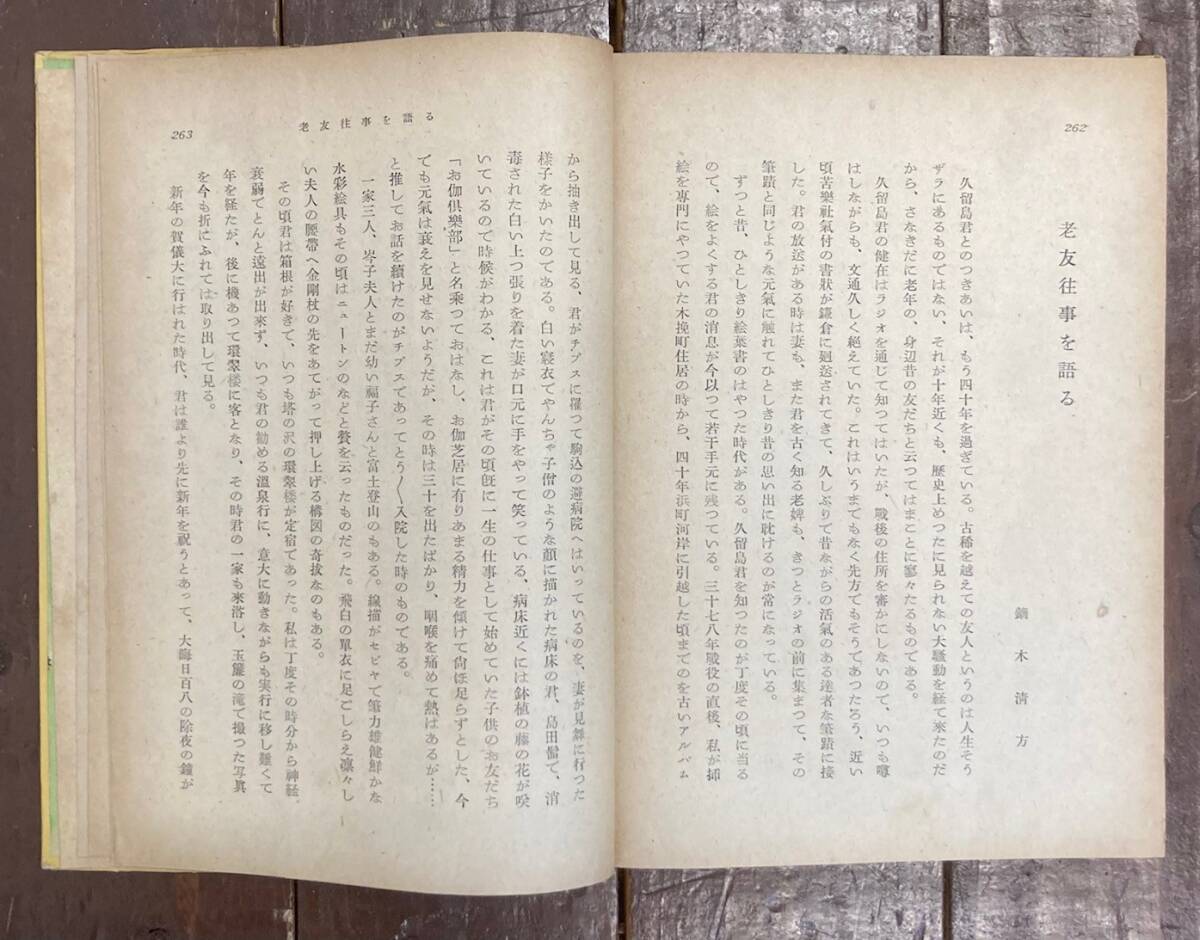 262
老友往事を語る
鏑木清方
久留島君とのつきあいは、もう四十年を過ぎている。古稀を越えての友人というのは人生そう
ザラにあるものではない、それが十年近くも、歴史上めつたに見られない大騒動を経て来たのだ
から、さなきだに老年の、身辺昔の友だちと云つてはまことに寥々たるものである。
久留島君の健在はラジオを通じて知つてはいたが、戰後の住所を審かにしないので、いつも噂
はしながらも、文通久しく絶えていた。これはいうまでもなく先方でもそうであつたろう、近い
頃苦樂社氣付の書狀が鎌倉に廻送されてきて、久しぶりで昔ながらの活氣のある達者な筆蹟に接
した。君の放送がある時は妻も、また君を古く知る老婢も、きつとラジオの前に集まつて、その
筆蹟と同じような元氣に触れてひとしきり昔の思い出に耽けるのが常になつている。
ずつと昔、ひとしきり絵葉書のはやつた時代がある。久留島君を知つたのが丁度その頃に当る
ので、絵をよくする君の消息が今以つて若干手元に残つている。三十七八年戰役の直後、私が挿
絵を専門にやつていた木挽町住居の時から、四十年浜町河岸に引越した頃までのを古いアルバム
263
老友往事を語る
から抽き出して見る、君がチブスに罹つて駒込の避病院へはいつているのを、妻が見舞に行つた
樣子をかいたのである。白い寝衣でやんちゃ子僧のような顔に描かれた病床の君、島田髷で、消
毒された白い上つ張りを着た妻が口元に手をやつて笑っている、病床近くには鉢植の藤の花が咲
いているので時候がわかる、これは君がその頃既に一生の仕事として始めていた子供のお友だち
「お伽倶樂部」と名乘つておはなし、お伽芝居に有りあまる精力を傾けて尙ほ足らずとした、今
ても元氣は衰えを見せないようだが、その時は三十を出たばかり、咽喉を痛めて熱はあるが……
と推してお話を續けたのがチブスであつてとう〱入院した時のものである。
一家三人、岑子夫人とまだ幼い福子さんと富士登山のもある。線描がセピヤで筆力雄健鮮かな
水彩絵具もその頃はニュートンのなどと贅を云つたものだった。飛白の單衣に足ごしらえ凛々し
い夫人の腰帶へ金剛杖の先をあてがつて押し上げる構図の奇拔なのもある。
その頃君は箱根が好きで、いつも塔の沢の環翠楼が定宿であつた。私は丁度その時分から神経
衰弱でとんと遠出が出來ず、いつも君の勧める溫泉行に、意大に動きながらも実行に移し難くて
年を経たが、後に機あつて環翠楼に客となり、その時君の一家も來浴し、玉簾の滝で撮つた写眞
を今も折にふれては取り出して見る。
新年の賀儀大に行はれた時代、君は誰より先に新年を祝うとあって、大晦日百八の除夜の鐘が